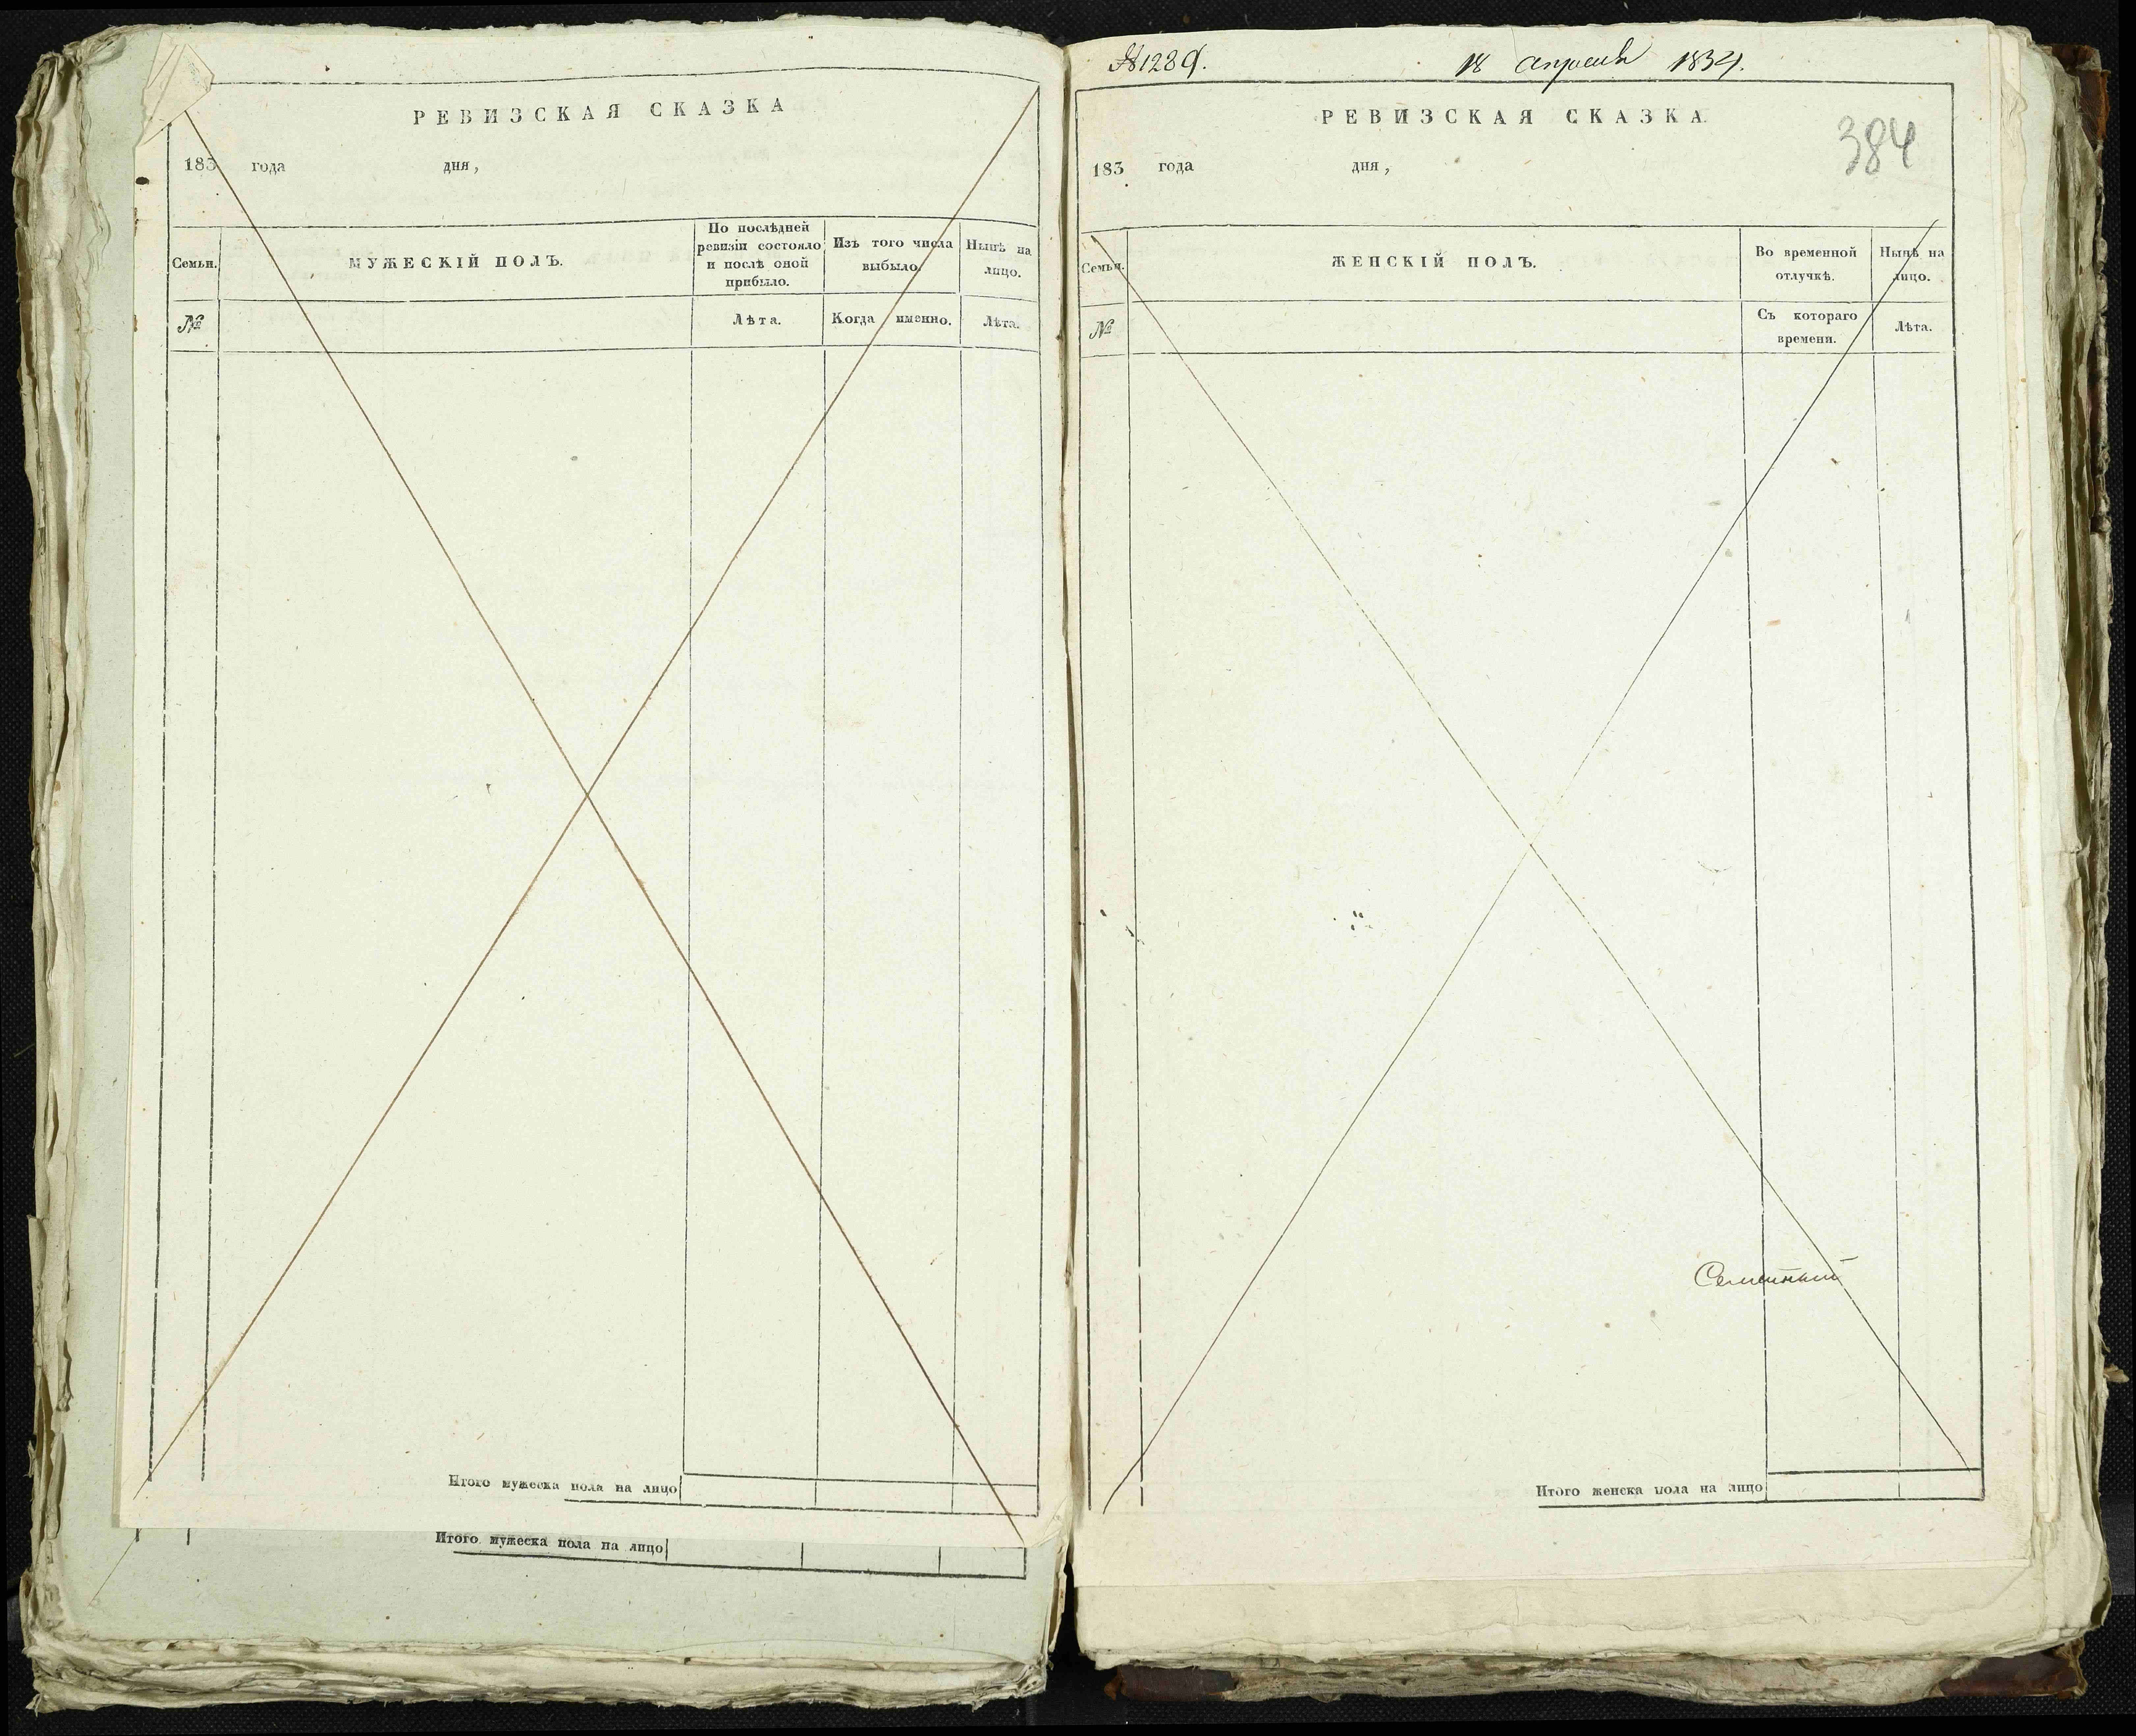 РЕВИЗСКАЯ СКАЗКА
183 года дня,
Семьи.
МУЖЕСКІЙ ПОЛЪ.
По послѣдней
ревизіи состояло
и послѣ оной
прибыло.
Изъ того числа
выбыло.
Нынѣ на
лицо.
№
Лѣта.
Когда именно.
Лѣта.
Итого мужеска пола на лицо
Итого мужеска пола на лицо
№1289. 18 апреля 1834.
РЕВИЗСКАЯ СКАЗКА
384
183 года дня,
Семьи.
ЖЕНСКІЙ ПОЛЪ.
Во временной
отлучкѣ.
Нынѣ на
лицо.
№
Съ котораго
времени.
Лѣта.
Итого женска пола на лицо